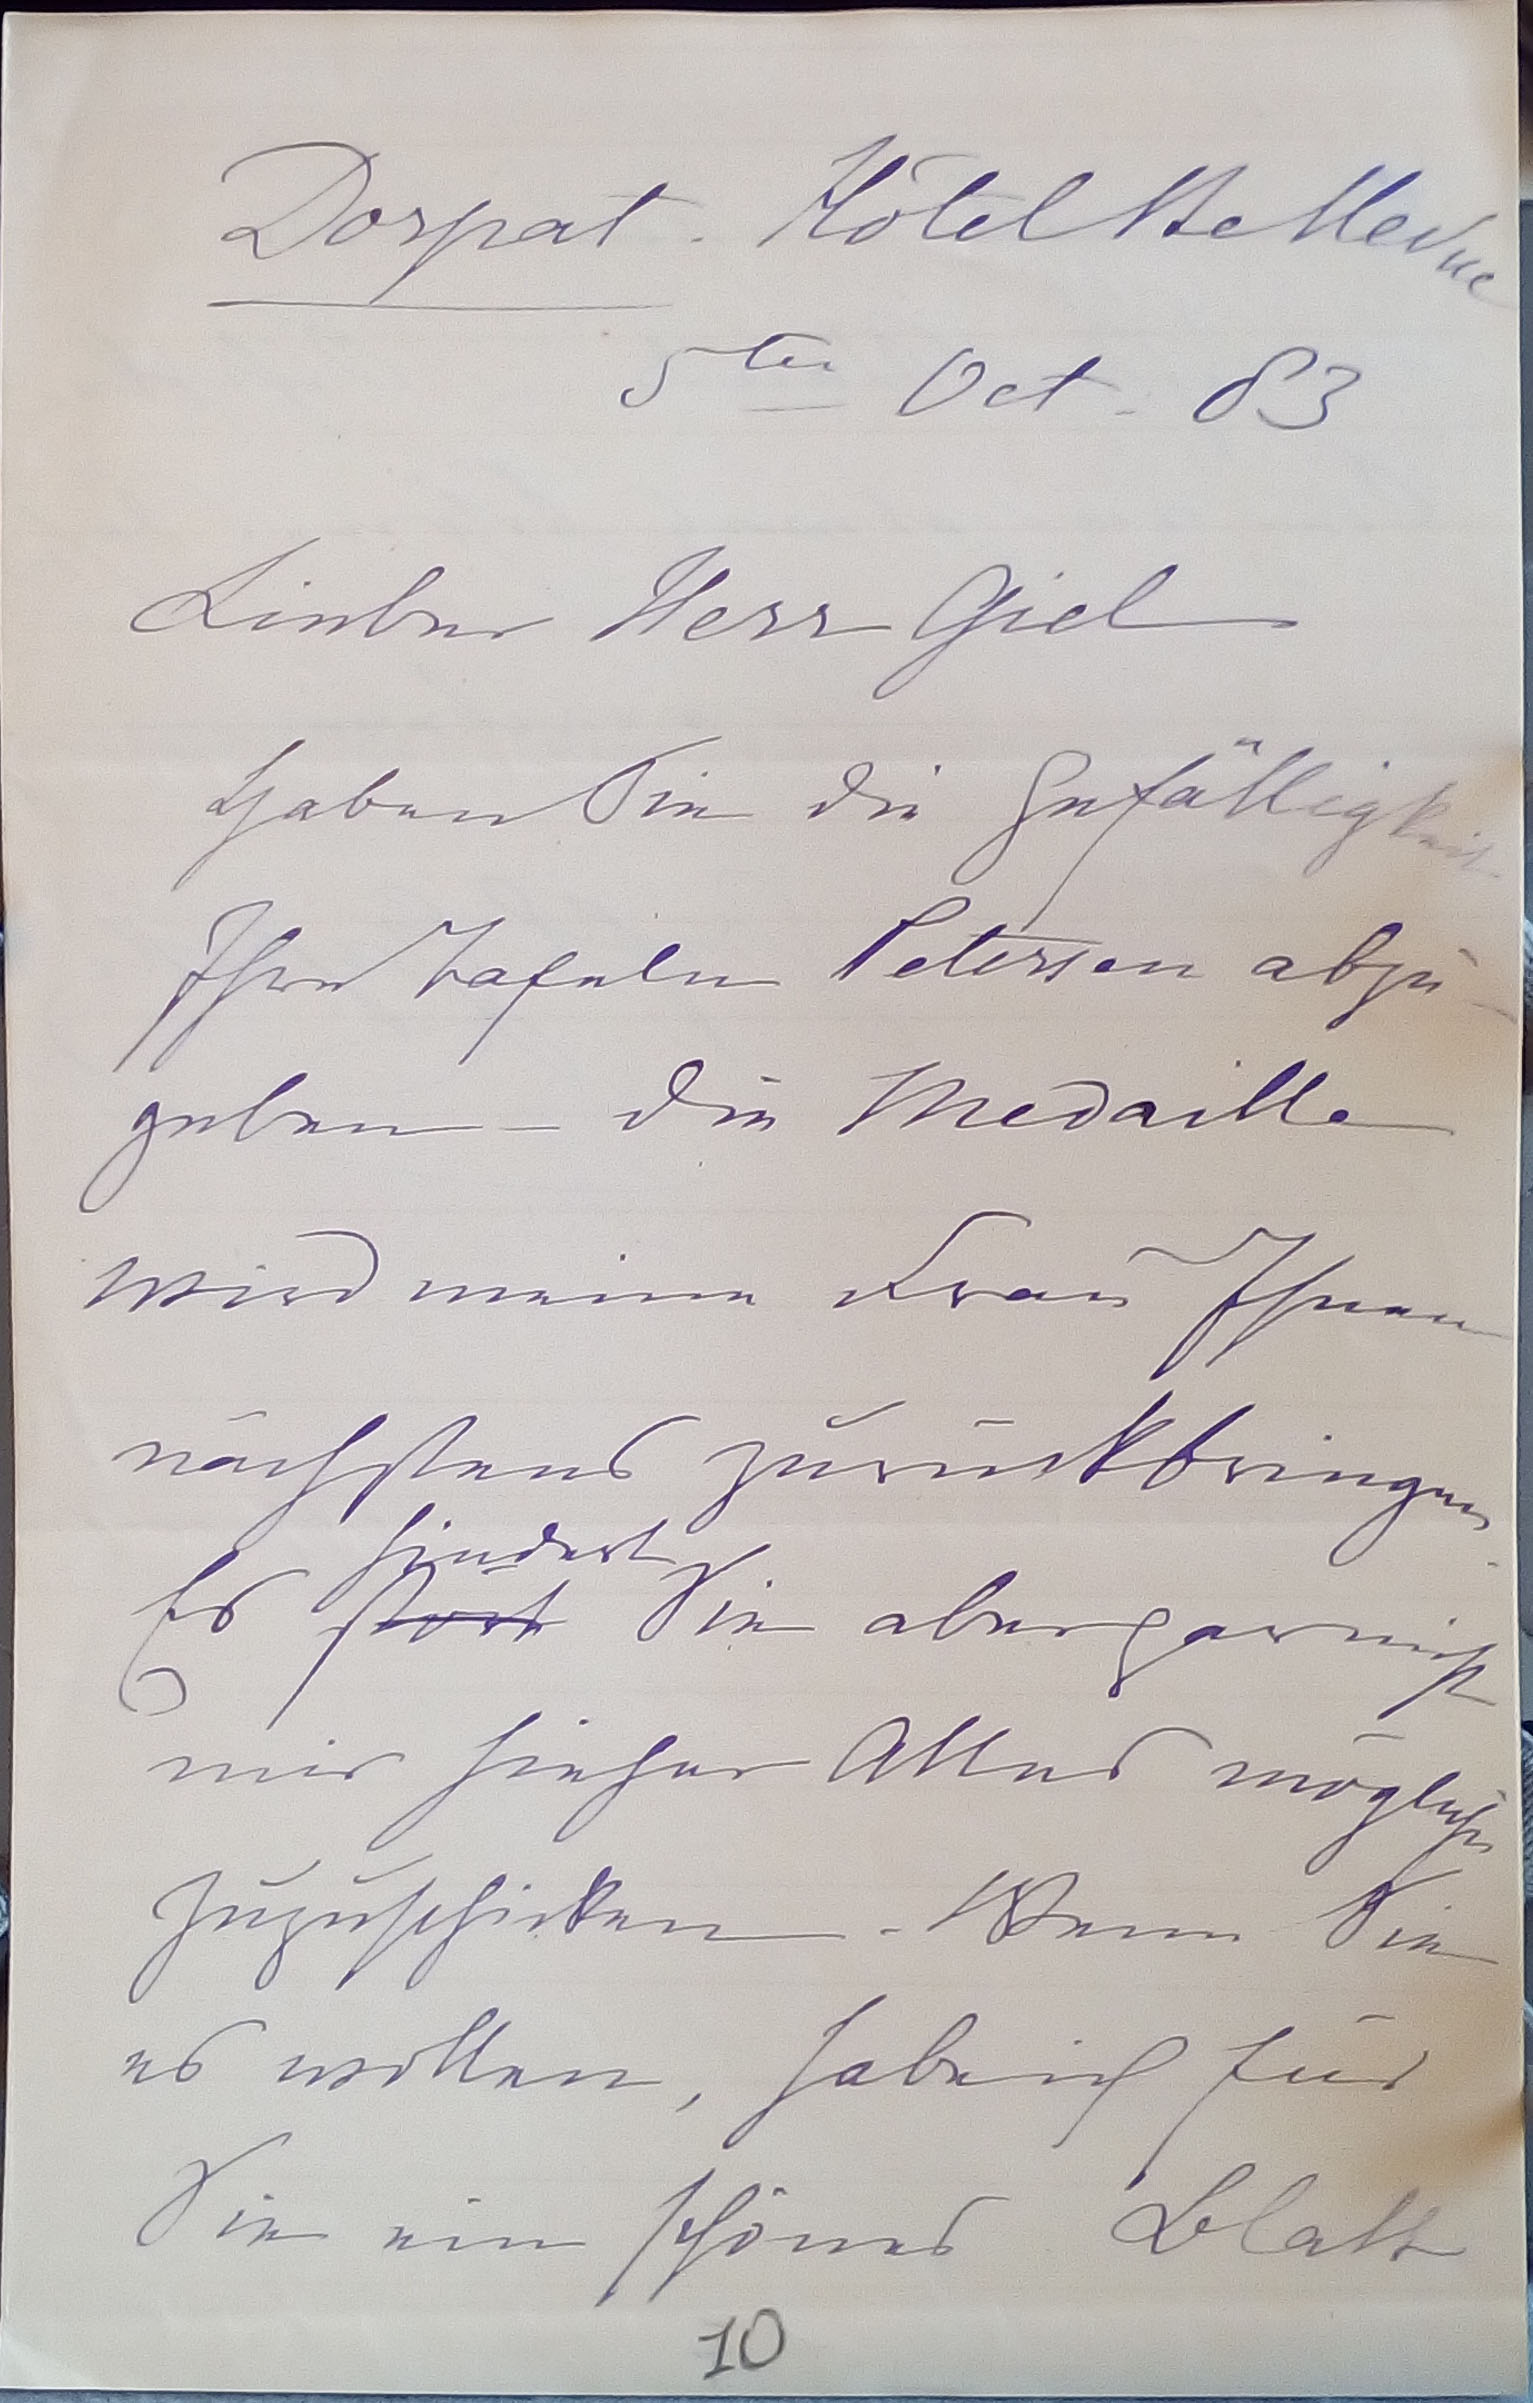 Dorpat. Hôtel Bellevue
5ten Oct. 83
Lieber Herr Giel
Haben Sie die Gefälligkeit
Ihre Tafeln Petersen abzu-
geben – die Medaille
wird meine Frau Ihnen
nächstens zurückbringen.
hindert
Es stört Sie aber gar nicht
mir hieher Alles mögliche
zuzuschicken. Wenn Sie
es wollen, habe ich für
Sie ein schönes Blatt
10